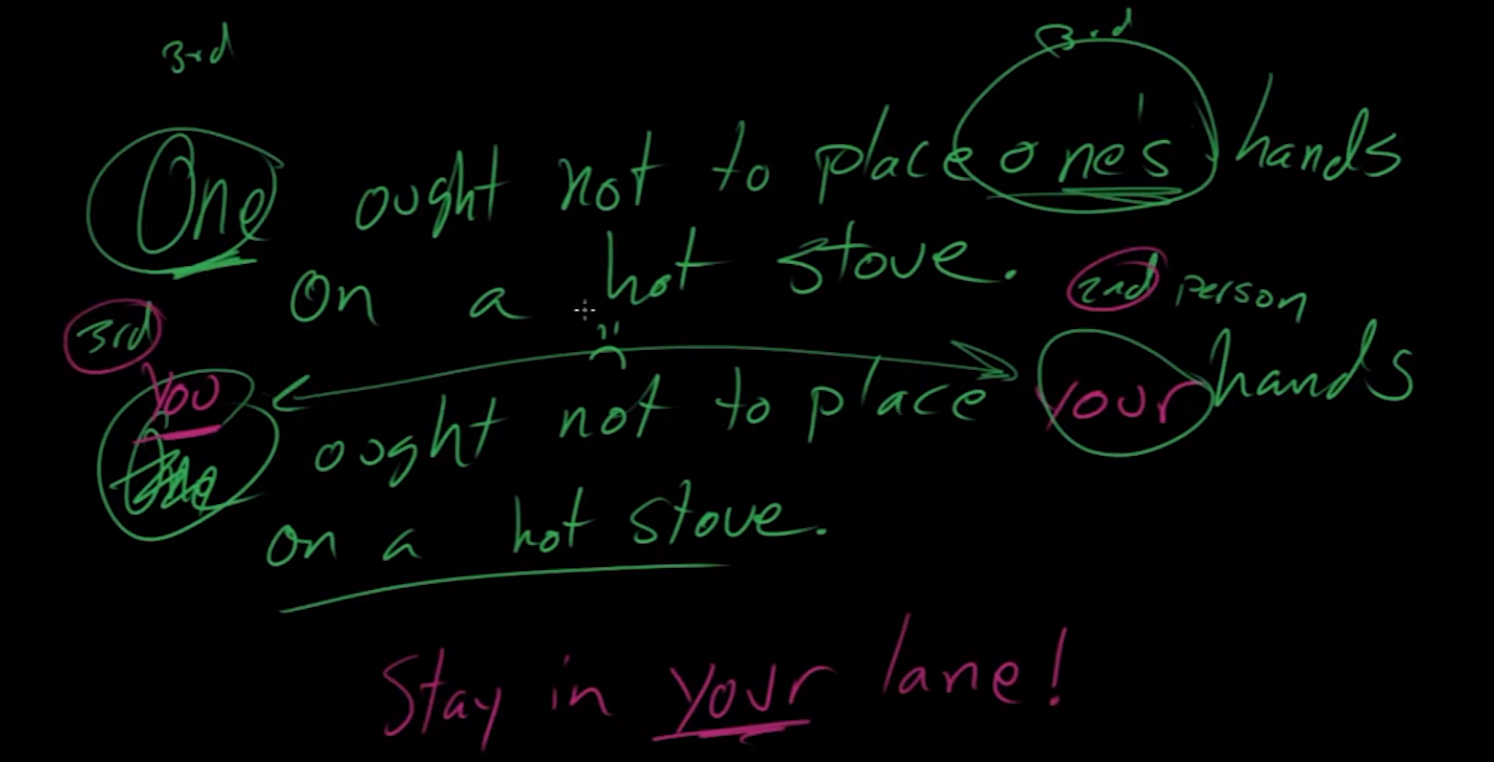 3rd 3rd
One ought not to place one's hands
on a hot stove.
2nd person
3rd
you
One ought not to place your hands
on a hot stove.
Stay in your lane!